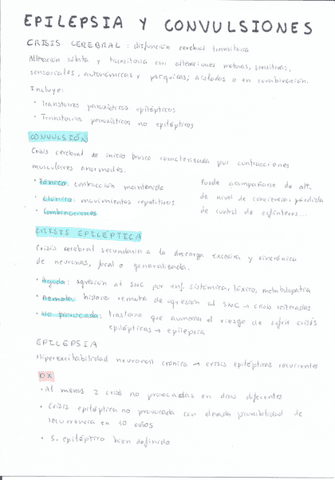 EPILEPSIA Y CONVULSIONES
CRISIS CEREBRAL: disfunción cerebral transitoria
Alteración súbita y transitoria con alteraciones motoras, sensitivas,
sensoriales, autonómicas y psíquicas; aisladas o en combinación.
Incluye:
· Trastornos paroxísticos epilépticos
· Trastornos paroxísticos no epilépticos
CONVULSIÓN
Crisis cerebral de inicio brusco caracterizada por contracciones
musculares anormales.
· Tónica: contracción mantenida
· Clónica: movimientos repetitivos
· Combinaciones
Puede acompañarse de alt.
de nivel de conciencia, pérdida
de control de esfínteres...
CRISIS EPILÉPTICA
Crisis cerebral secundaria a la descarga excesiva y sincrónica
de neuronas, focal o generalizada.
· Aguda: agresión al SNC por enf. sistémicas, tóxicos, metabolopatía
· Remota: historia remota de agresión al SNC → crisis
· No provocada: trastorno que aumenta el riesgo de sufrir crisis
epilépticas → epilepsia
EPILEPSIA
Hiperexcitabilidad neuronal crónica → crisis epilépticas recurrentes
DX
· Al menos 2 crisis no provocadas en días diferentes
· Crisis epiléptica no provocada con elevada probabilidad de
recurrencia en 10 años
· S. epiléptico bien definido